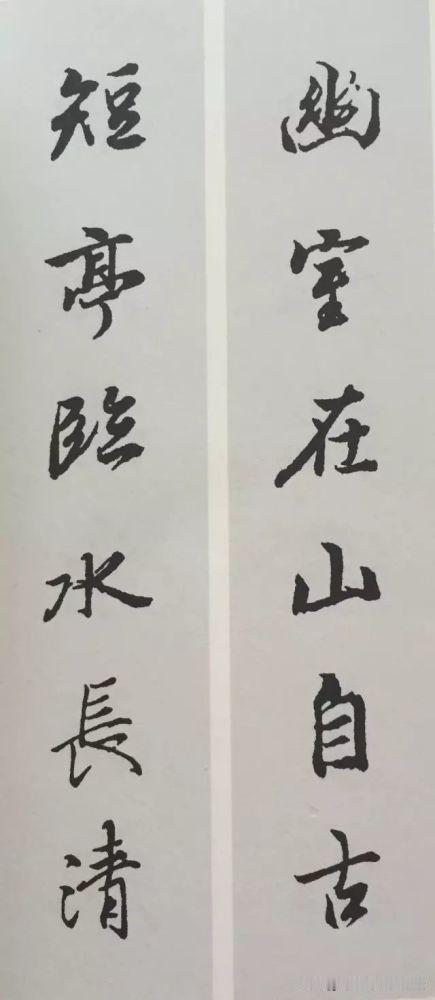 幽室在山自古
短亭臨水長清